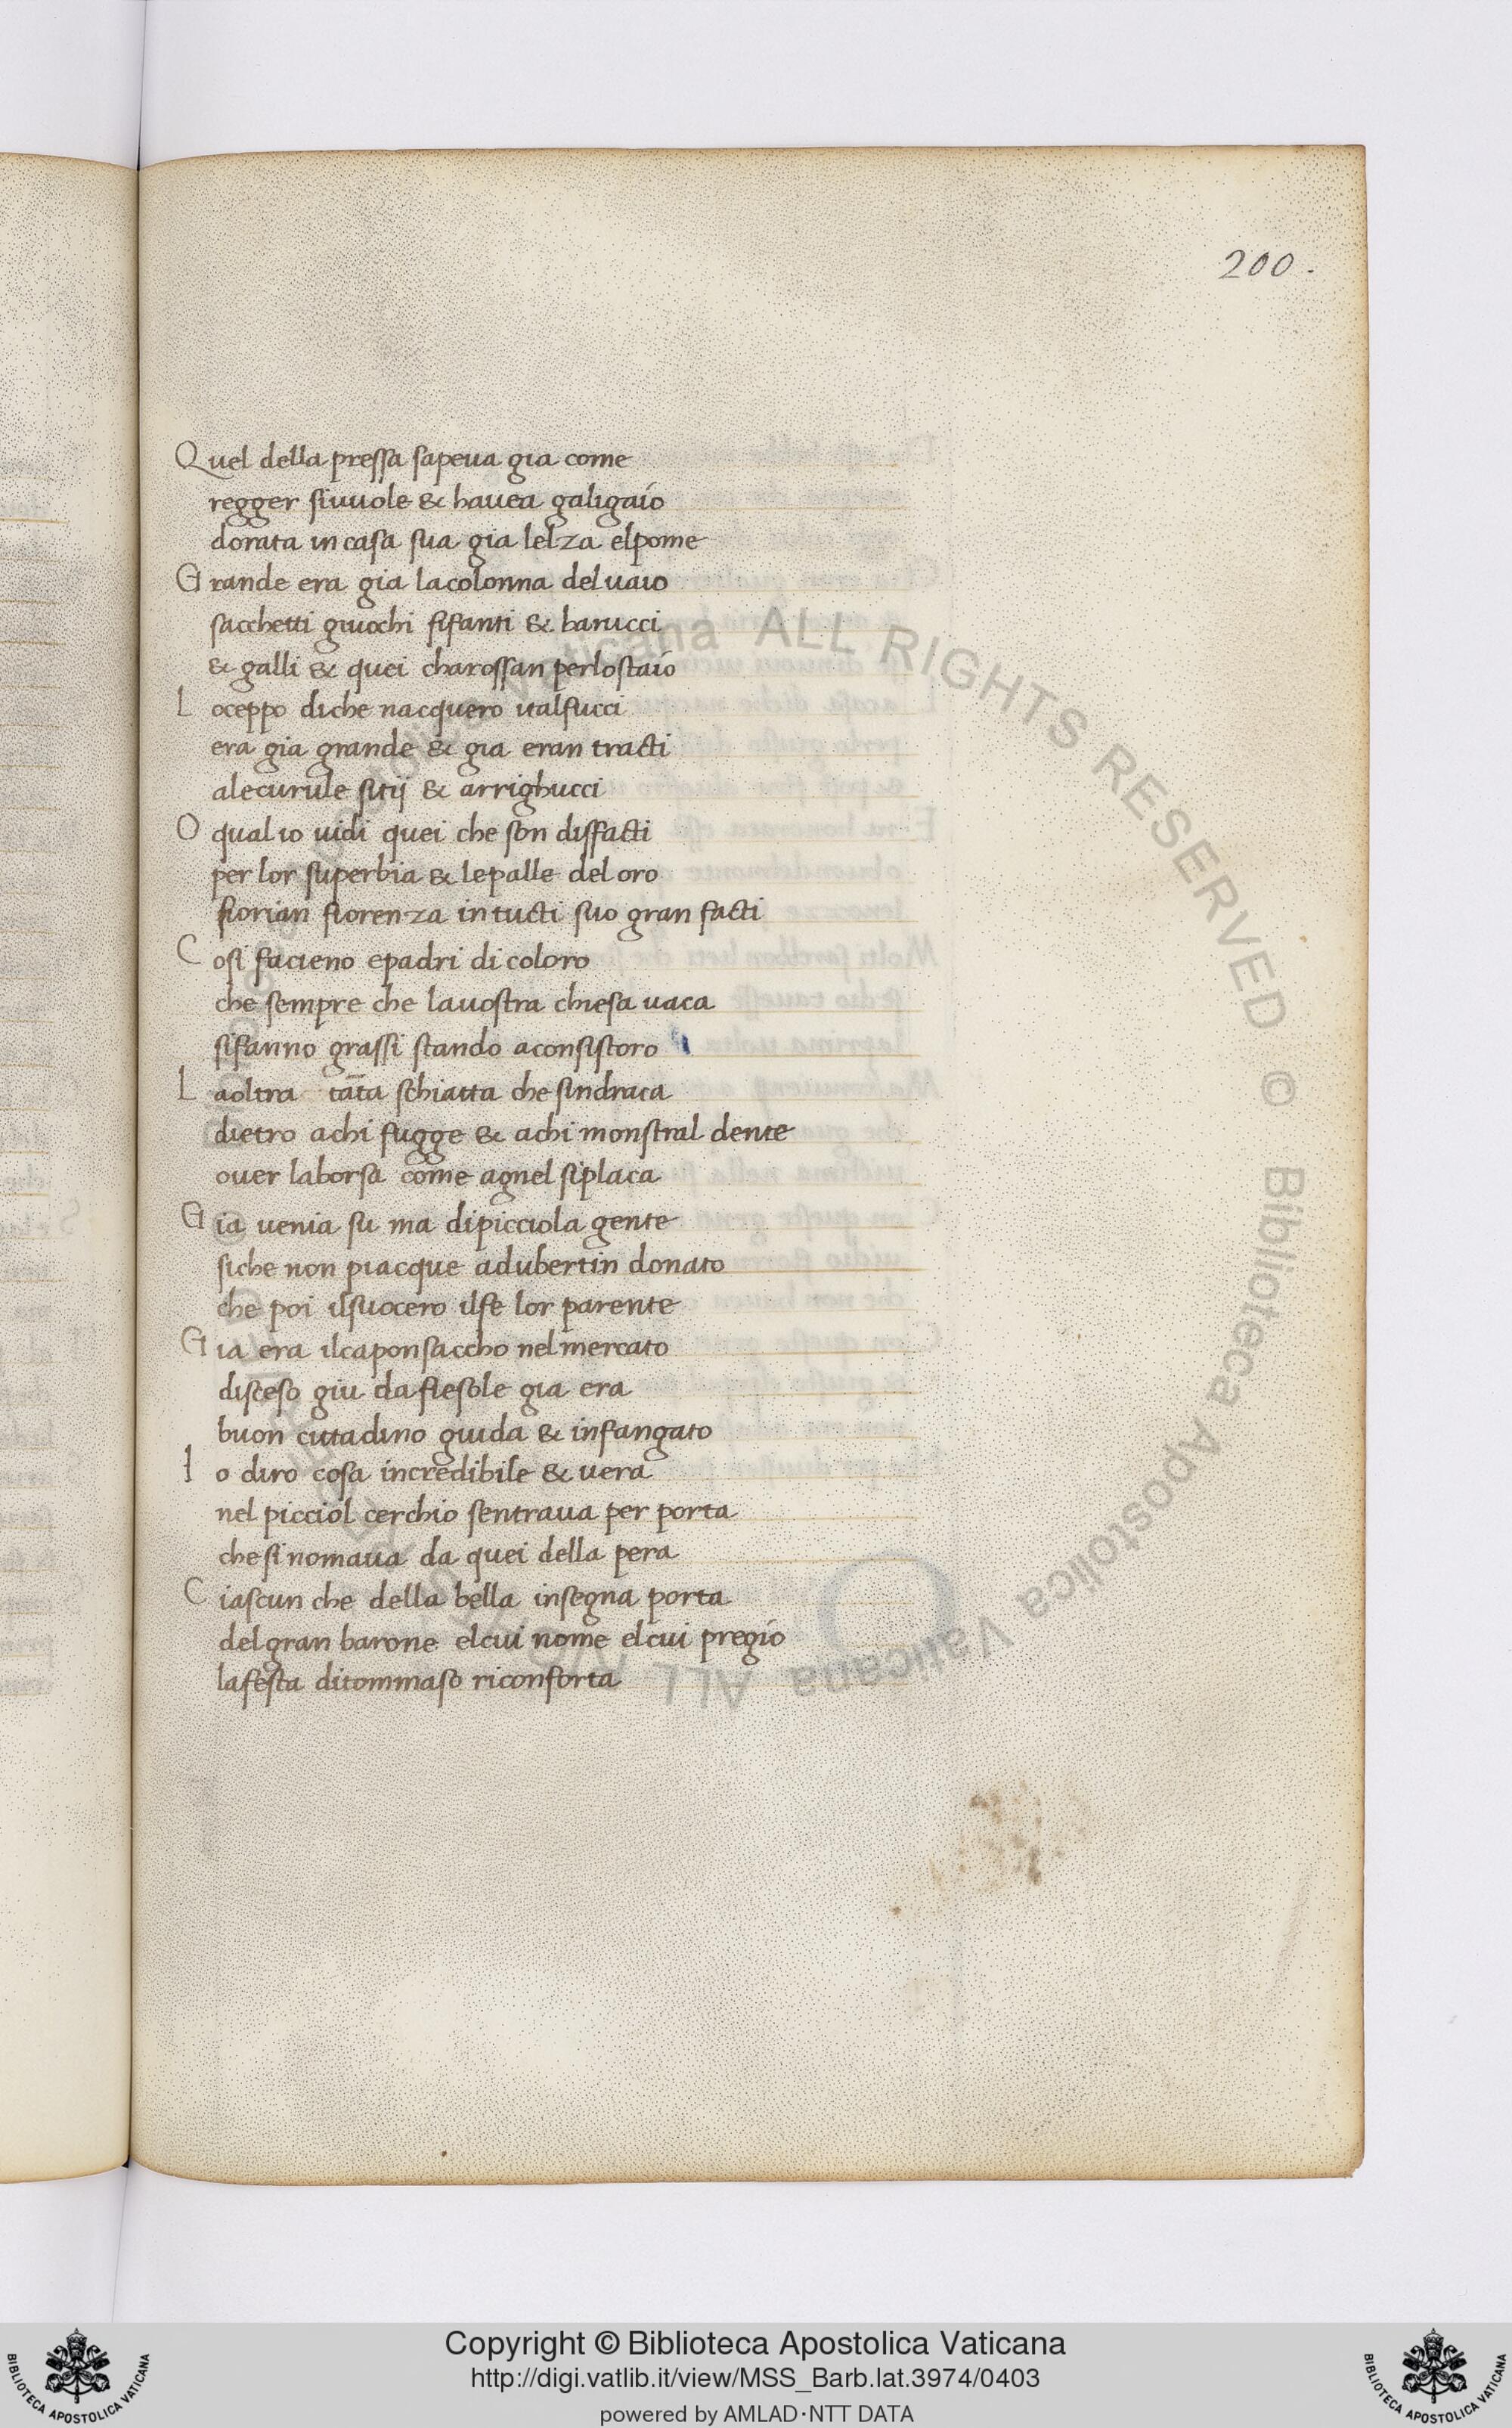 200.
Quel della pressa sapeua gia come
regger siuuole & hauea galigaio
dorata in casa sua gia lelza elpome
Grande era gia lacolonna deluaio
sacchetti giuochi fifanti & barucci
& galli & quei charossan perlostaio
Loceppo diche nacquero icalfucci
era gia grande & gia eran tracti
alecurule sitij & arrighucci
O qual io uidi quei che son disfacti
per lor superbia & lepalle del oro
fiorian fiorenza in tucti suo gran facti
Cosi facieno epadri di coloro
che sempre che lauostra chiesa uaca
sifanno grassi stando aconsistoro
Laoltra tāta schiatta che sindraca
dietro achi fugge & achi monstral dente
ouer laborsa come agnel siplaca
Gia uenia su ma dipicciola gente
siche non piacque adubertin donato
che poi ilsuocero ilfe lor parente
Gia era ilcaponsaccho nel mercato
disceso giu da fiesole gia era
buon cittadino guida & infangato
Io diro cosa incredibile & uera
nel picciol cerchio sentraua per porta
che si nomaua da quei della pera
Ciascun che della bella insegna porta
del gran barone elcui nome elcui pregio
lafesta ditommaso riconforta
© Biblioteca Apostolica Vaticana ALL RIGHTS RESERVED
Copyright © Biblioteca Apostolica Vaticana
http://digi.vatlib.it/view/MSS_Barb.lat.3974/0403
powered by AMLAD·NTT DATA
BIBLIOTECA APOSTOLICA VATICANA
BIBLIOTECA APOSTOLICA VATICANA